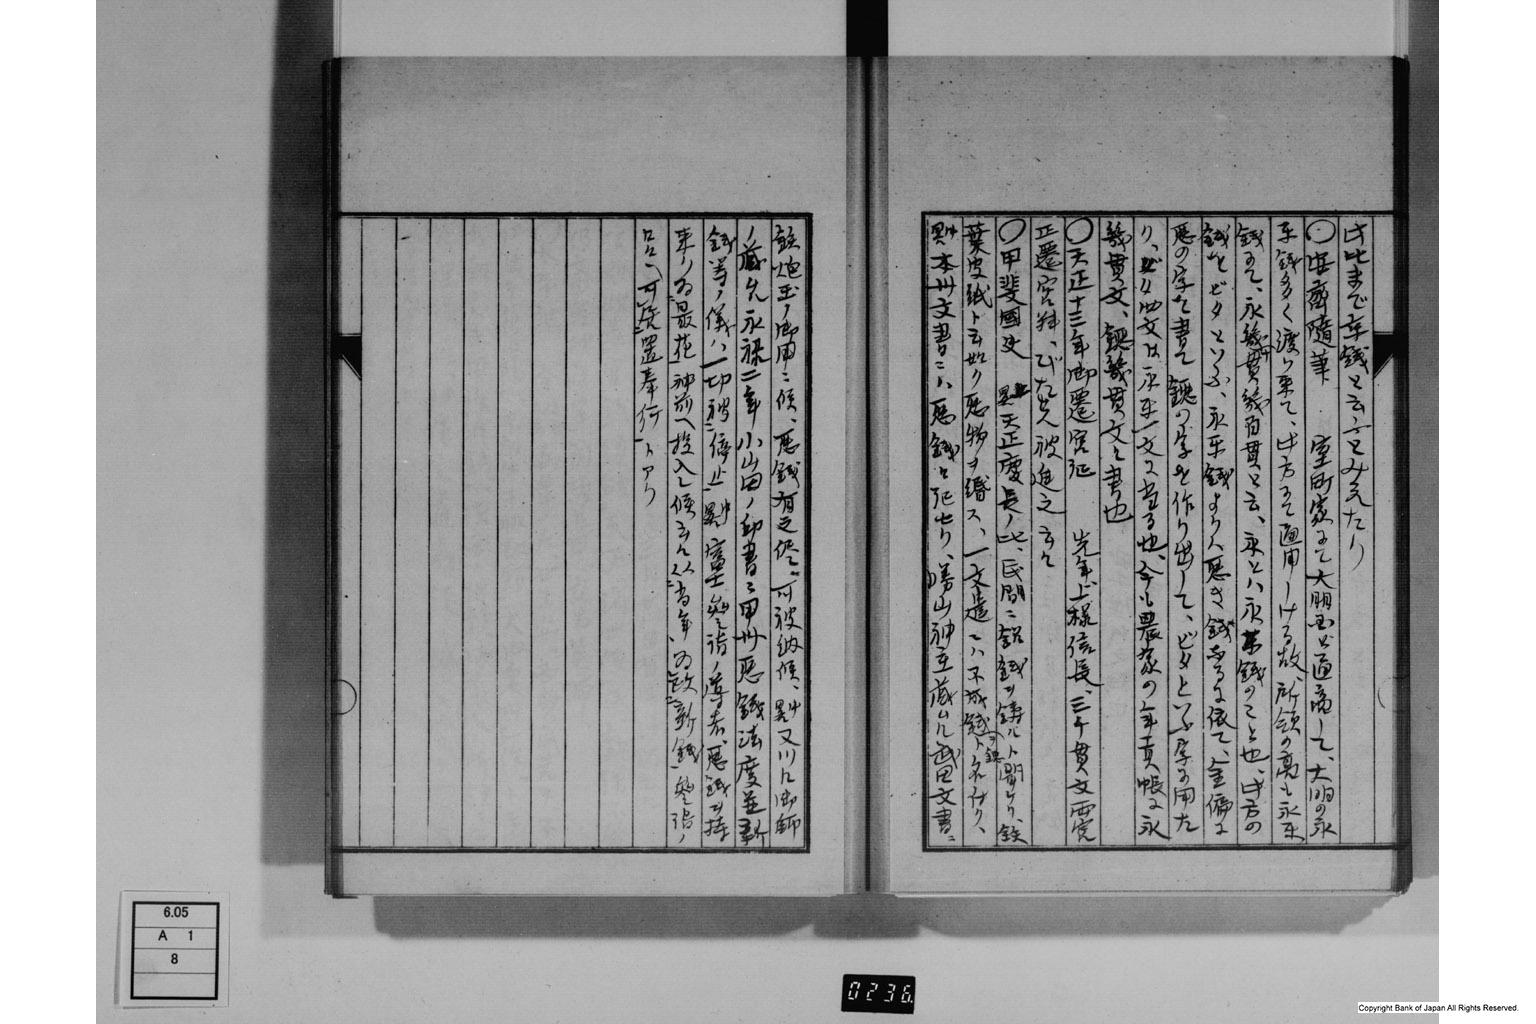 此比まで幸銭と云ことみえたり
〇安齋隨筆 室町家にて大明国と通商して、大明の永
楽銭多く渡り来て、此方にて通用しける故、所領の高も永楽
銭にて、永幾貫幾百貫と云、永とハ永楽銭のこと也、此方の
銭をビタといふ、永楽銭より八悪き銭なるに依て、金偏に
悪の字を書て鐚の字を作り出して、ビタといふ字に用た
り、ビタ四文は永楽一文に当る也、今も農家の年貢帳に永
幾貫文、鐚幾貫文と書也
〇天正十三年御遷宮記 先年上様信長、三千貫文両宮
正遷宮料、びた先被進之云々
〇甲斐國史 天正慶長ノ比、民間ニ鉛銭ヲ鋳ルト聞ケリ、鉄
葉皮紙ト云如ク悪物ヲ緡ス、一文遣ニハ不成銭ト名付ク、
本州文書ニハ悪銭ト記セリ、勝山神主蔵ムル武田文書ニ
鉄炮玉ノ御用ニ候、悪銭有之儘、可被納候、又川口御師
ノ蔵ル永禄二年小山田ノ印書ニ甲州悪銭法度並新
銭等ノ儀ハ一切被停止 富士参詣ノ導者、悪銭ヲ持
来リ為最花神前へ投入候云々、従当年為改新銭
可被置奉行トアリ
6.05
A 1
8
0236.
Copyright Bank of Japan All Rights Reserved.